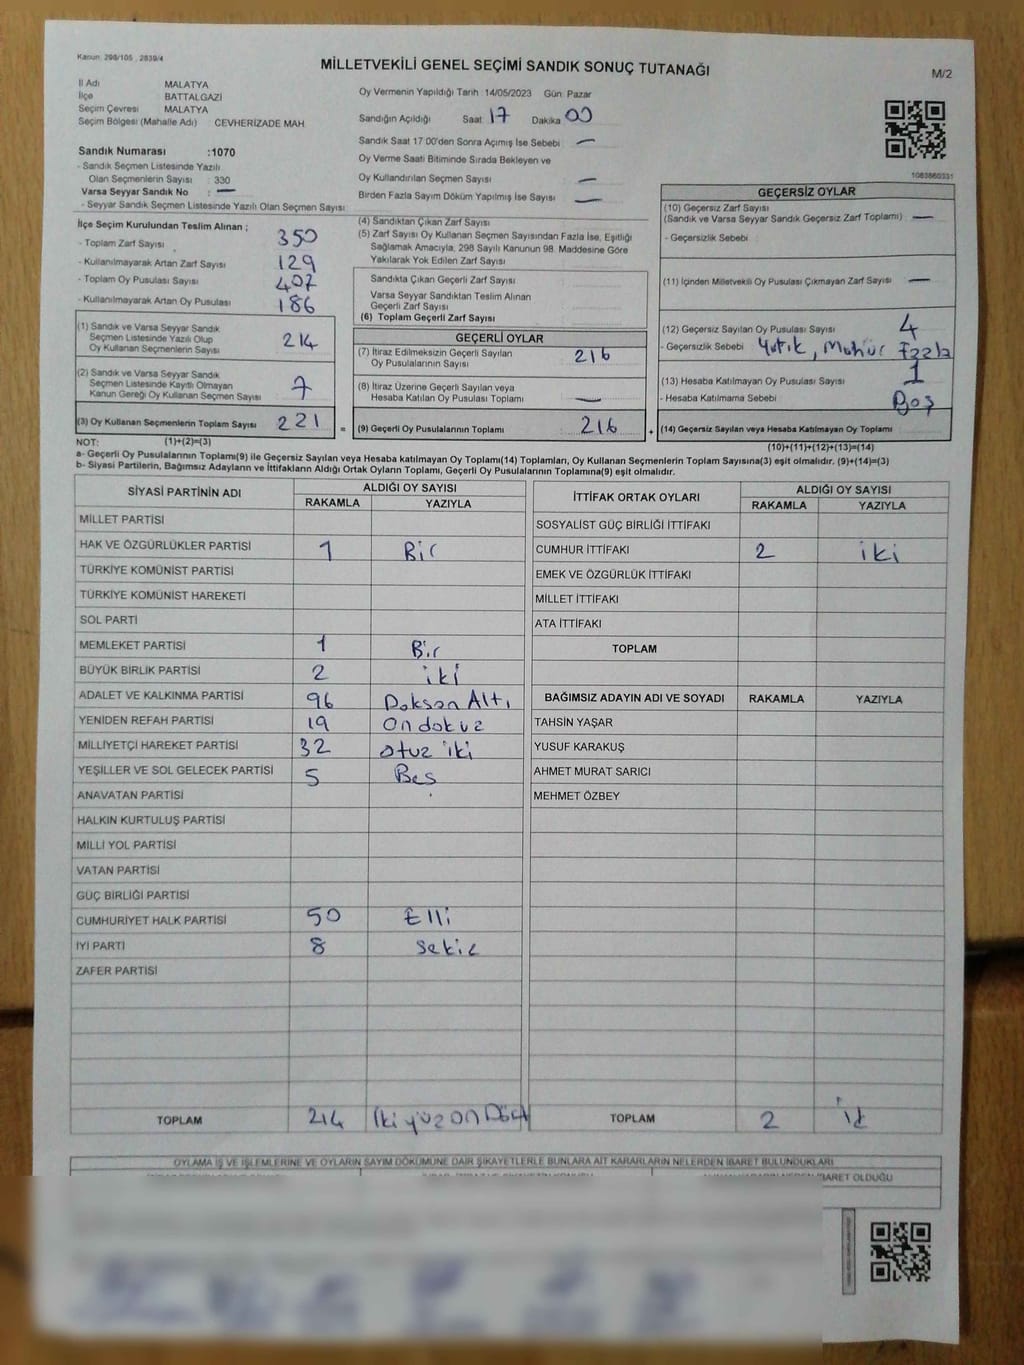 Kanun: 298/105 , 2839/4
MİLLETVEKİLİ GENEL SEÇİMİ SANDIK SONUÇ TUTANAĞI
M/2
İl Adı MALATYA
İlçe BATTALGAZİ
Seçim Çevresi MALATYA
Seçim Bölgesi (Mahalle Adı) CEVHERİZADE MAH.
Oy Vermenin Yapıldığı Tarih 14/05/2023 Gün: Pazar
Sandığın Açıldığı Saat 17 Dakika 00
Sandık Saat 17:00'den Sonra Açılmış İse Sebebi —
Oy Verme Saati Bitiminde Sırada Bekleyen ve
Oy Kullandırılan Seçmen Sayısı —
Birden Fazla Sayım Döküm Yapılmış İse Sayısı —
1083860331
Sandık Numarası :1070
- Sandık Seçmen Listesinde Yazılı
Olan Seçmenlerin Sayısı : 330
Varsa Seyyar Sandık No : —
- Seyyar Sandık Seçmen Listesinde Yazılı Olan Seçmen Sayısı
İlçe Seçim Kurulundan Teslim Alınan ;
- Toplam Zarf Sayısı 350
- Kullanılmayarak Artan Zarf Sayısı 129
- Toplam Oy Pusulası Sayısı 407
- Kullanılmayarak Artan Oy Pusulası 186
(1) Sandık ve Varsa Seyyar Sandık
Seçmen Listesinde Yazılı Olup
Oy Kullanan Seçmenlerin Sayısı 214
(2) Sandık ve Varsa Seyyar Sandık
Seçmen Listesinde Kayıtlı Olmayan
Kanun Gereği Oy Kullanan Seçmen Sayısı 7
(3) Oy Kullanan Seçmenlerin Toplam Sayısı 221 =
(4) Sandıktan Çıkan Zarf Sayısı
(5) Zarf Sayısı Oy Kullanan Seçmen Sayısından Fazla İse, Eşitliği
Sağlamak Amacıyla, 298 Sayılı Kanunun 98. Maddesine Göre
Yakılarak Yok Edilen Zarf Sayısı
Sandıkta Çıkan Geçerli Zarf Sayısı
Varsa Seyyar Sandıktan Teslim Alınan
Geçerli Zarf Sayısı
(6) Toplam Geçerli Zarf Sayısı
GEÇERLİ OYLAR
(7) İtiraz Edilmeksizin Geçerli Sayılan
Oy Pusulalarının Sayısı 216
(8) İtiraz Üzerine Geçerli Sayılan veya
Hesaba Katılan Oy Pusulası Toplamı —
(9) Geçerli Oy Pusulalarının Toplamı 216 +
GEÇERSİZ OYLAR
(10) Geçersiz Zarf Sayısı
(Sandık ve Varsa Seyyar Sandık Geçersiz Zarf Toplamı) —
- Geçersizlik Sebebi :
(11) İçinden Milletvekili Oy Pusulası Çıkmayan Zarf Sayısı —
(12) Geçersiz Sayılan Oy Pusulası Sayısı 4
- Geçersizlik Sebebi Yırtık, Mühür Fazla
(13) Hesaba Katılmayan Oy Pusulası Sayısı 1
- Hesaba Katılmama Sebebi Boş
(14) Geçersiz Sayılan veya Hesaba Katılmayan Oy Toplamı
NOT: (1)+(2)=(3) (10)+(11)+(12)+(13)=(14)
a- Geçerli Oy Pusulalarının Toplamı(9) ile Geçersiz Sayılan veya Hesaba Katılmayan Oy Toplamı(14) Toplamları, Oy Kullanan Seçmenlerin Toplam Sayısına(3) eşit olmalıdır. (9)+(14)=(3)
b- Siyasi Partilerin, Bağımsız Adayların ve İttifakların Aldığı Ortak Oyların Toplamı, Geçerli Oy Pusulalarının Toplamına(9) eşit olmalıdır.
SİYASİ PARTİNİN ADI ALDIĞI OY SAYISI
RAKAMLA YAZIYLA
MİLLET PARTİSİ
HAK VE ÖZGÜRLÜKLER PARTİSİ 1 Bir
TÜRKİYE KOMÜNİST PARTİSİ
TÜRKİYE KOMÜNİST HAREKETİ
SOL PARTİ
MEMLEKET PARTİSİ 1 Bir
BÜYÜK BİRLİK PARTİSİ 2 iki
ADALET VE KALKINMA PARTİSİ 96 Doksan Altı
YENİDEN REFAH PARTİSİ 19 Ondokuz
MİLLİYETÇİ HAREKET PARTİSİ 32 otuz iki
YEŞİLLER VE SOL GELECEK PARTİSİ 5 Bes
ANAVATAN PARTİSİ
HALKIN KURTULUŞ PARTİSİ
MİLLİ YOL PARTİSİ
VATAN PARTİSİ
GÜÇ BİRLİĞİ PARTİSİ
CUMHURİYET HALK PARTİSİ 50 Elli
İYİ PARTİ 8 Sekiz
ZAFER PARTİSİ
TOPLAM 214 İkiyüz On Dört
İTTİFAK ORTAK OYLARI ALDIĞI OY SAYISI
RAKAMLA YAZIYLA
SOSYALİST GÜÇ BİRLİĞİ İTTİFAKI
CUMHUR İTTİFAKI 2 iki
EMEK VE ÖZGÜRLÜK İTTİFAKI
MİLLET İTTİFAKI
ATA İTTİFAKI
TOPLAM
BAĞIMSIZ ADAYIN ADI VE SOYADI RAKAMLA YAZIYLA
TAHSİN YAŞAR
YUSUF KARAKUŞ
AHMET MURAT SARICI
MEHMET ÖZBEY
TOPLAM 2
OYLAMA İŞ VE İŞLEMLERİNE VE OYLARIN SAYIM DÖKÜMÜNE DAİR ŞİKAYETLERLE BUNLARA AİT KARARLARIN NELERDEN İBARET BULUNDUKLARI
İBARET OLDUĞU